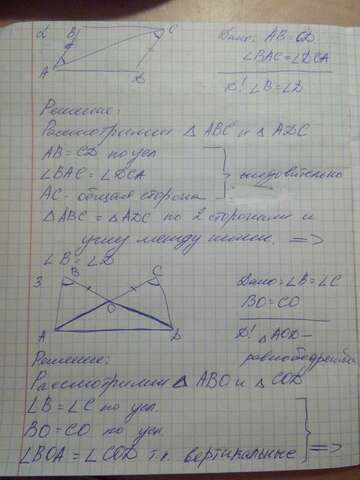 2. B C Дано: AB=CD
∠BAC=∠DCA
A D Д! ∠B=∠D
Решение:
Рассмотрим △ ABC и △ ADC
AB=CD по усл
∠BAC=∠DCA следовательно
AC- общая сторона
△ABC=△ADC по 2 сторонами и
углу между ними. =>
∠B=∠D
3. B C Дано: ∠B=∠C
BO=CO
O
A D Д! △AOD-
равнобедренный
Решение:
Рассмотрим △ ABO и △ COD
∠B=∠C по усл.
BO=CO по усл.
∠BOA=∠COD т.к. вертикальные =>